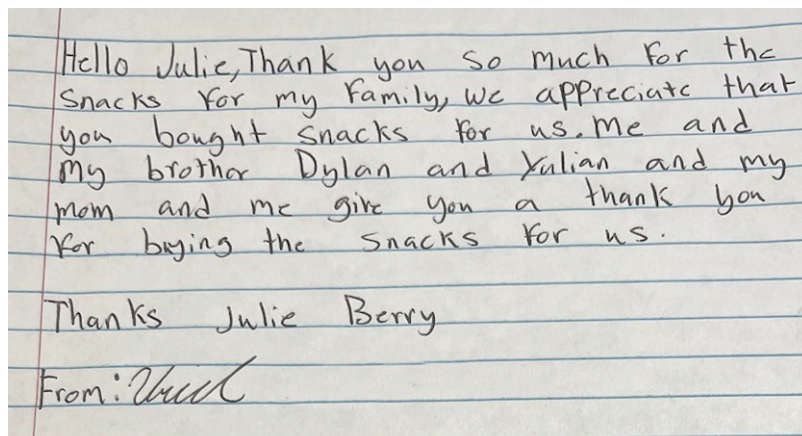 Hello Julie, Thank you so much for the
snacks for my family, we appreciate that
you bought snacks for us. Me and
my brother Dylan and Yulian and my
mom and me give you a thank you
for buying the snacks for us.
Thanks Julie Berry
From: